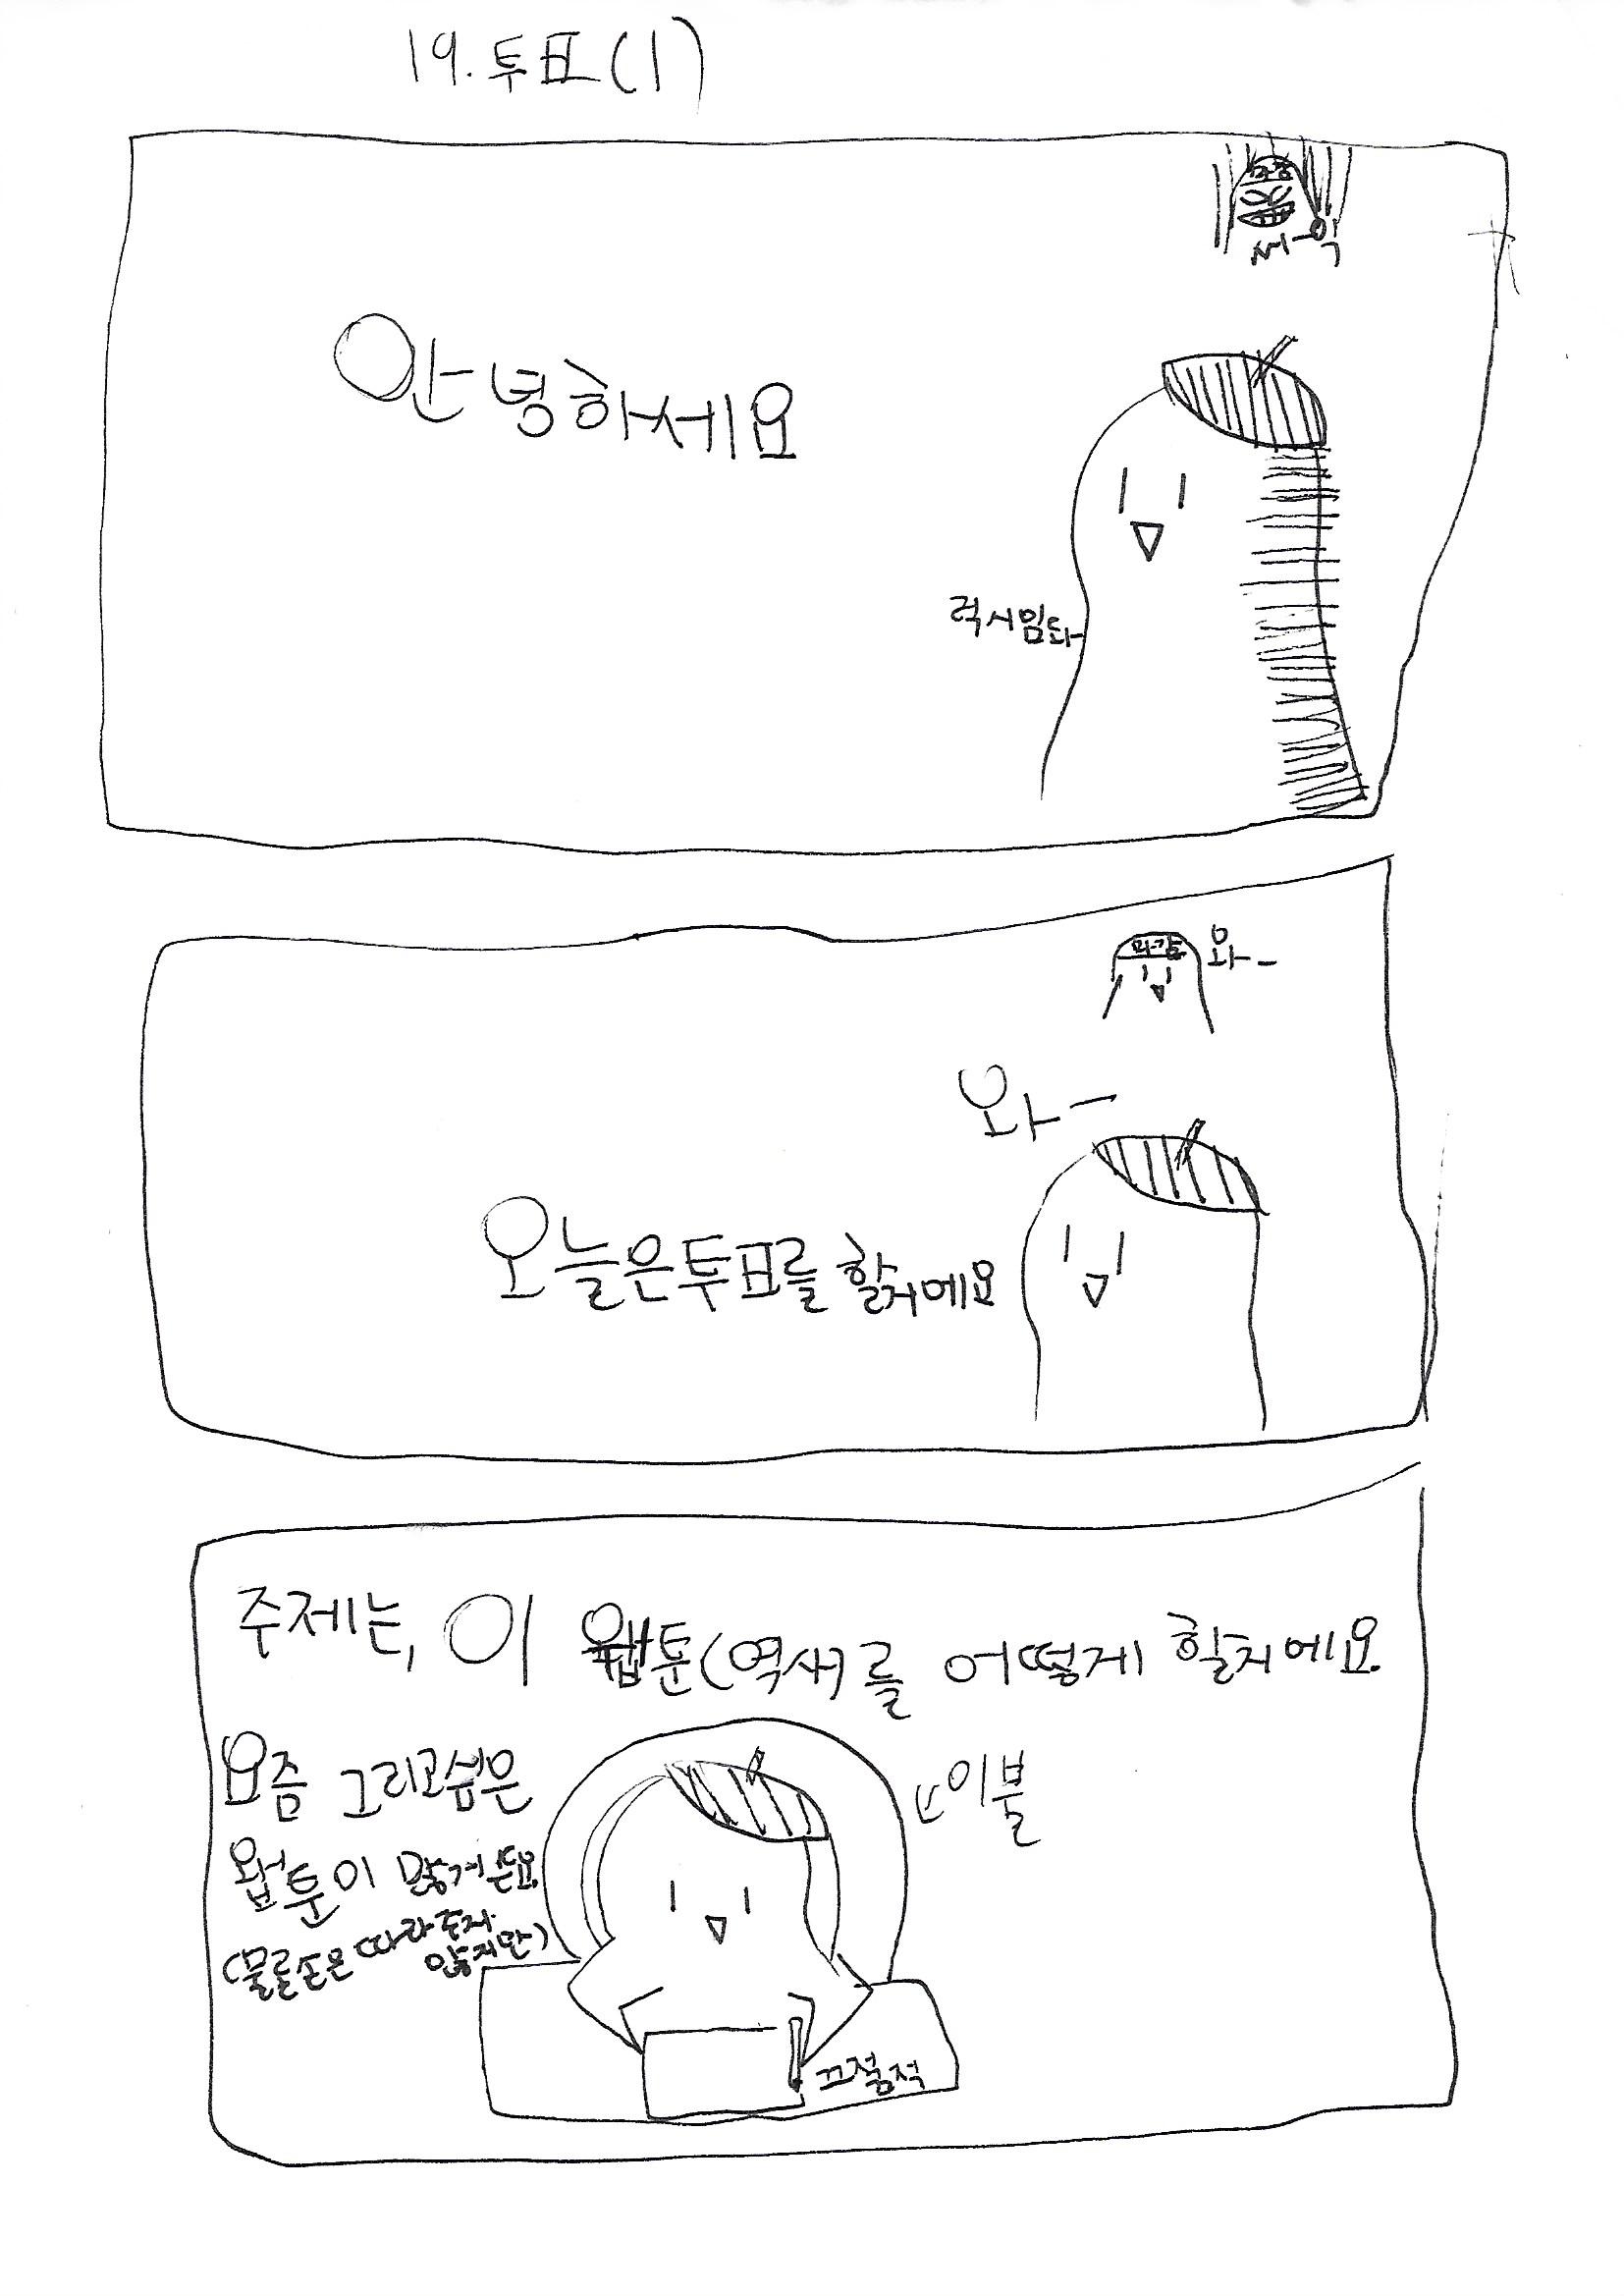 19. 투표(1)
씨-익
안녕하세요
럭시임돠
와-
와-
오늘은 투표를 할거에요
주제는, 이 웹툰(역사)를 어떻게 할지에요.
요즘 그리고싶은
웹툰이 많거든요
(물론 손은 따라주지
않지만)
이불
끄적끄적